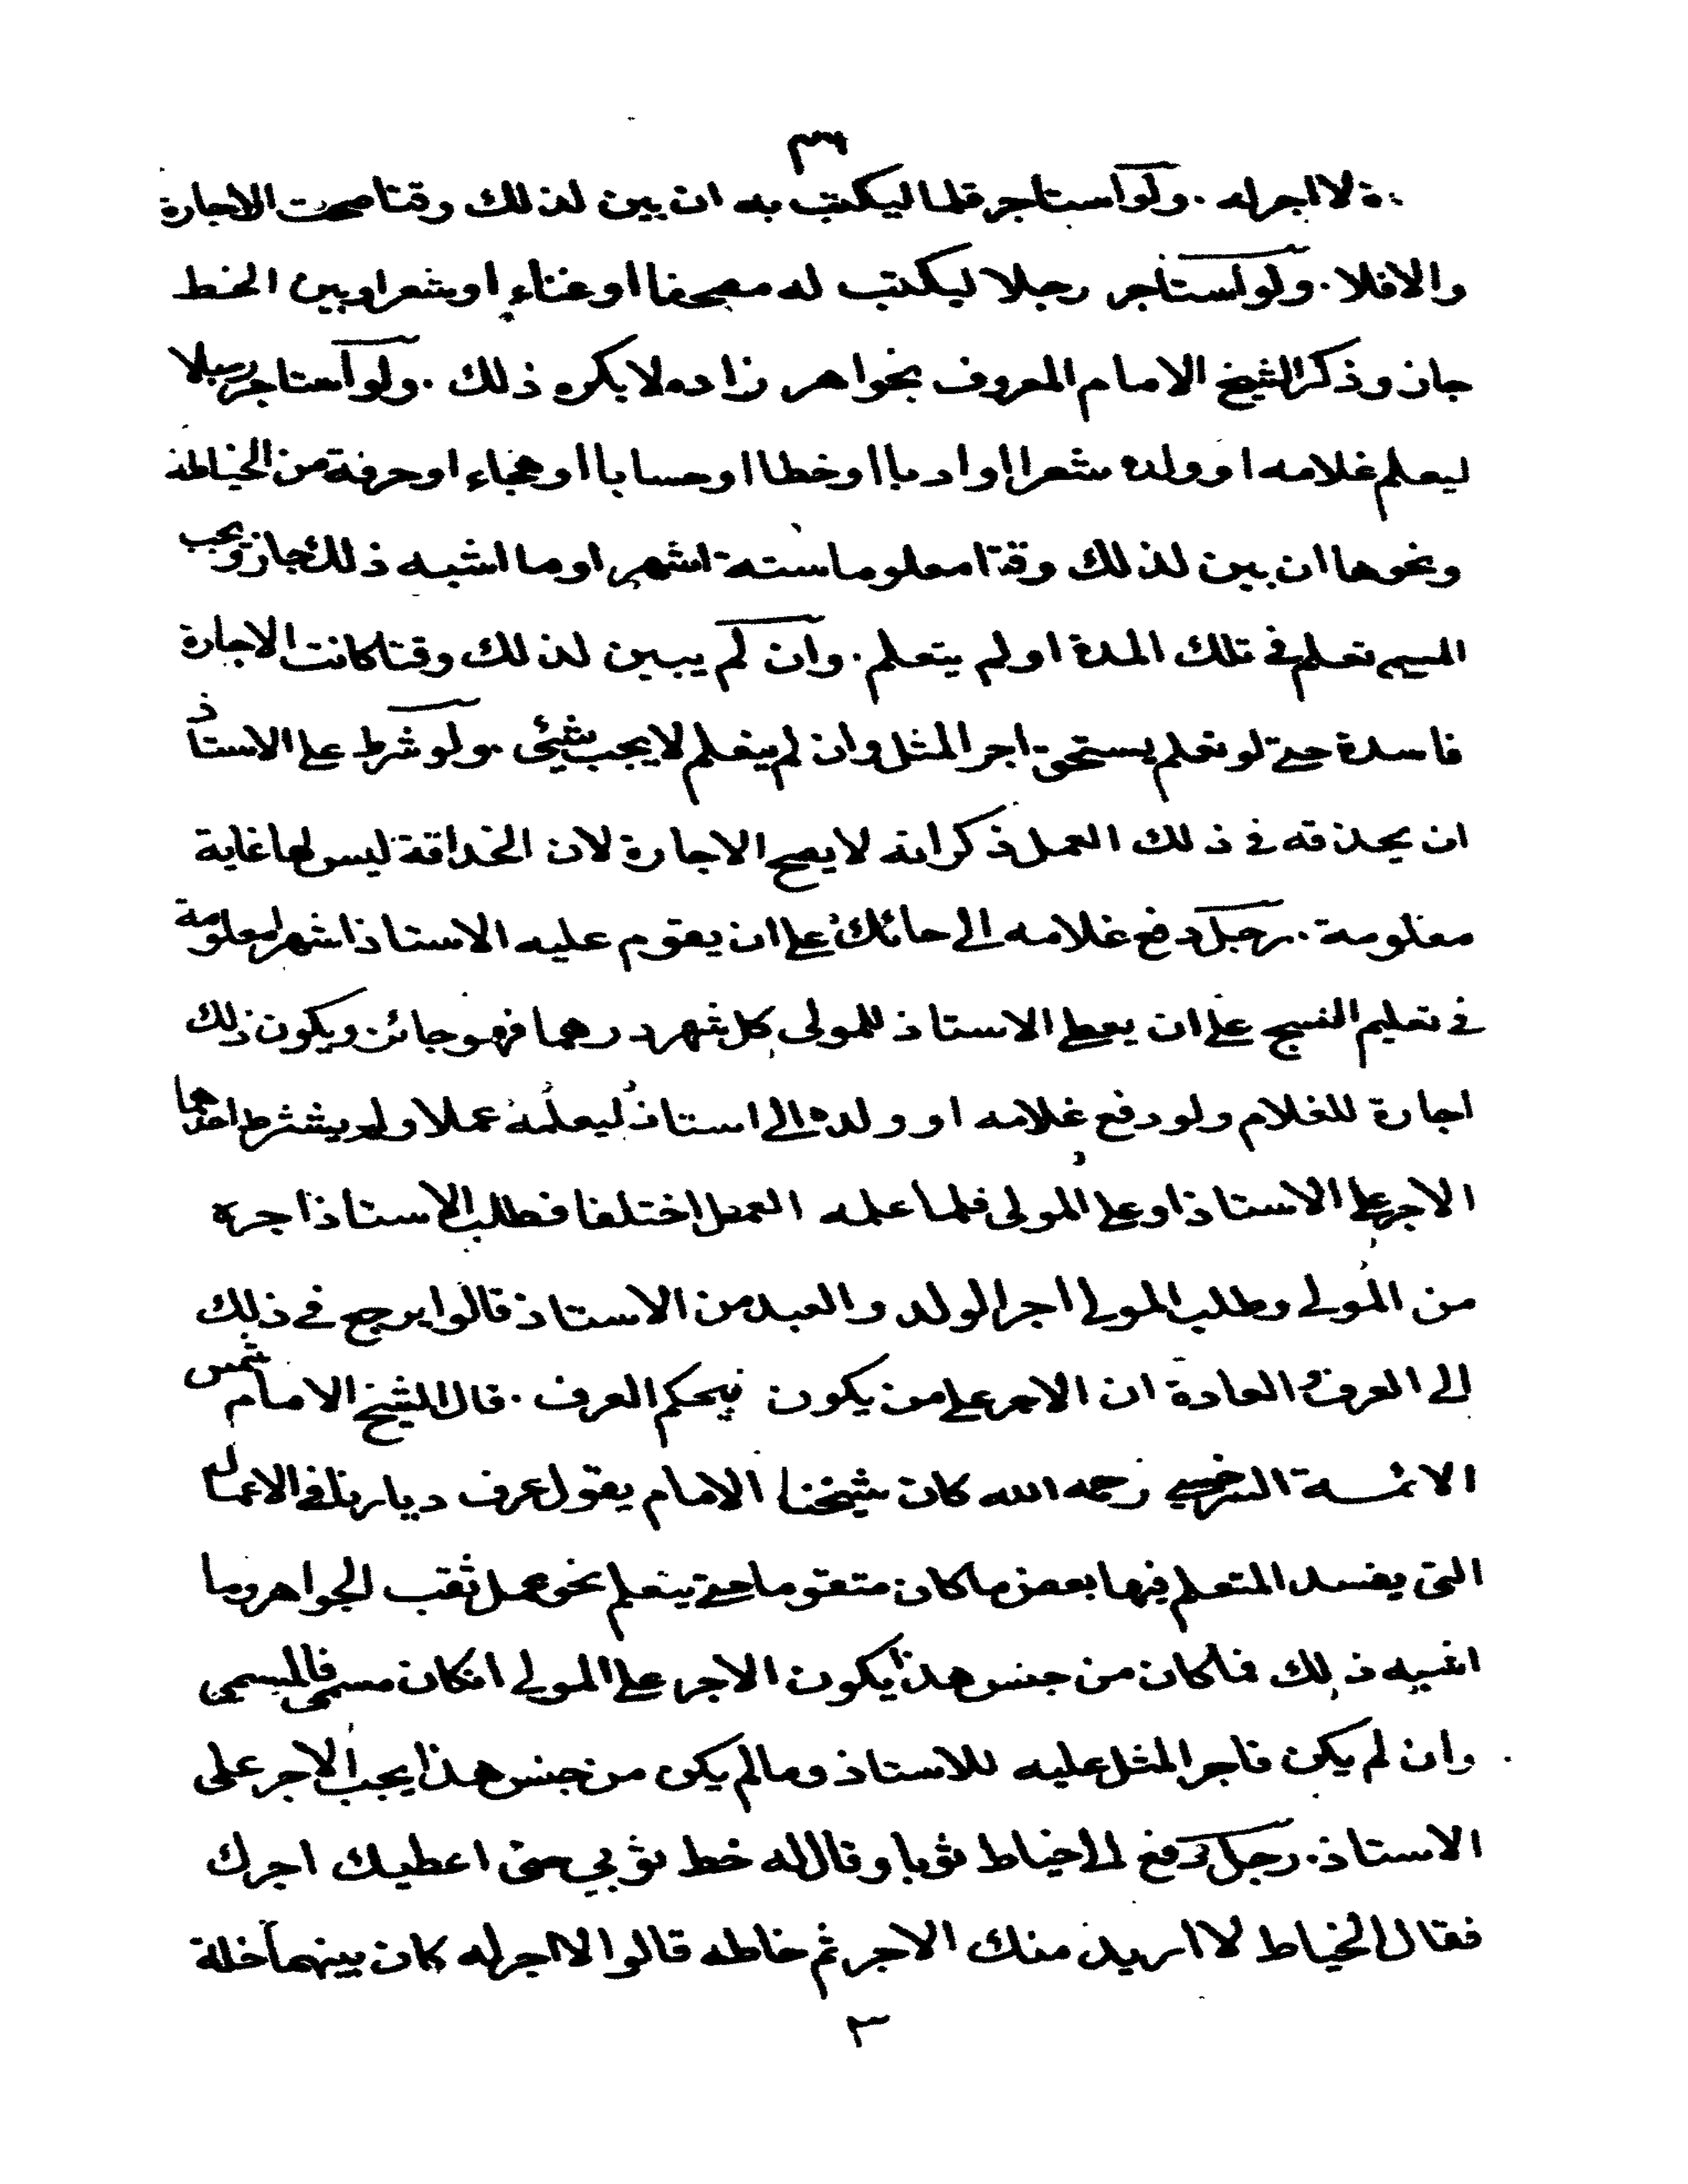 ٣٦
لا اجر له . ولو استاجر قلما ليكتب به ان بين لذلك وقتا صحت الاجارة
والا فلا . ولو استاجر رجلا ليكتب له مصحفا او غناء او شعرا وبين الخط
جاز وذكر الشيخ الامام المعروف بخواهر زاده لا يكره ذلك . ولو استاجر رجلا
ليعلم غلامه او ولده شعرا او ادبا او خطا او حسابا او هجاء او حرفة من الخياطة
ونحوها ان بين لذلك وقتا معلوما ستة اشهر او ما اشبه ذلك جاز ويجب
المسمى تعلم في تلك المدة او لم يتعلم . وان لم يبين لذلك وقتا كانت الاجارة
فاسدة حتى لو تعلم يستحق اجر المثل وان لم يتعلم لا يجب شيئ . ولو شرط على الاستاذ
ان يحذقه في ذلك العمل ذكر انه لا يصح الاجارة لان الحذاقة ليس لها غاية
معلومة . رجل دفع غلامه الى حائك على ان يقوم عليه الاستاذ اشهر معلومة
في تعليم النسج على ان يعطى الاستاذ للمولى كل شهر درهما فهو جائز ويكون ذلك
اجارة للغلام ولو دفع غلامه او ولده الى استاذ ليعلمه عملا ولم يشترط احدهما
الاجر على الاستاذ او على المولى فلما علمه العمل اختلفا فطلب الاستاذ اجره
من المولى وطلب المولى اجر الولد والعبد من الاستاذ قالوا يرجع في ذلك
الى العرف والعادة ان الاجر على من يكون فيحكم العرف . قال الشيخ الامام شمس
الائمة السرخسى رحمه الله كان شيخنا الامام يقول عرف ديارنا في الاعمال
التى يفسد المتعلم فيها بعض ما كان متقوما حتى يتعلم نحو عمل ثقب الجواهر وما
اشبه ذلك فما كان من جنس هذا يكون الاجر على المولى ان كان مسمى فالمسمى
وان لم يكن فاجر المثل عليه للاستاذ وما لم يكن من جنس هذا يجب الاجر على
الاستاذ . رجل دفع الى خياط ثوبا وقال له خط ثوبي حتى اعطيك اجرك
فقال الخياط لا اريد منك الاجر ثم خاطه قالوا لا اجر له كان بينهما خلة